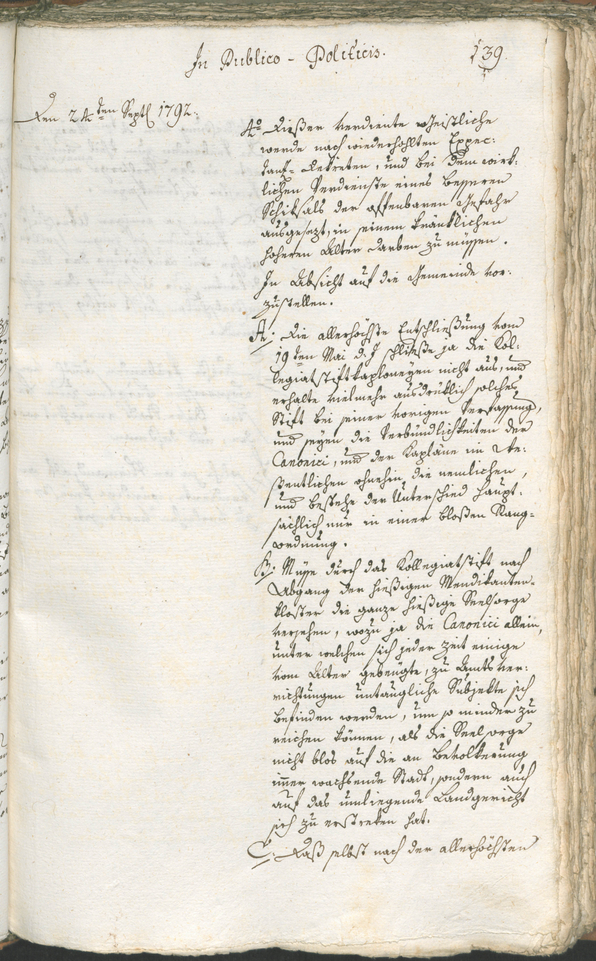 In Publico-Politicis.
139.
Den 24ten Septb 1792:
4to Dießer verdiente Geistliche
werde nach wiederhohlten Expec-
tanz-Dekreten, und bei dem wirk-
lichen Verdienste eines besseren
Schiksals der offenbaren Gefahr
ausgesezt, in seinem kränklichen
höheren Alter darben zu müssen.
In Absicht auf die Gemeinde vor-
zustellen.
A: Die allerhöchste Entschließung vom
19ten Mai d. J. schließe ja die Kol-
legiatstiftkaplaneyen nicht aus, und
erhalte vielmehr ausdrüklich solches
Stift bei seiner vorigen Verfassung,
und seyen die Verbündlichkeiten der
Canonici, und der Kapläne im We-
sentlichen ohnehin die nemlichen,
und bestehe der Unterschied haupt-
sächlich nur in einer bloßen Rang-
ordnung.
B: Müsse durch das Kollegiatstift nach
Abgang der hießigen Mendikanten-
klöster die ganze hießige Seelsorge
versehen, wozu ja die Canonici allein,
unter welchen sich jeder Zeit einige
vom Alter gebeugte, zu Amtsver-
richtungen untaugliche Subjekte sich
befinden werden, um so minder zu
reichen können, als die Seelsorge
nicht blos auf die an Bevölkerung
immer wachsende Stadt, sondern auch
auf das umliegende Landgericht
sich zu erstreken hat.
C: Daß selbst nach der allerhöchsten